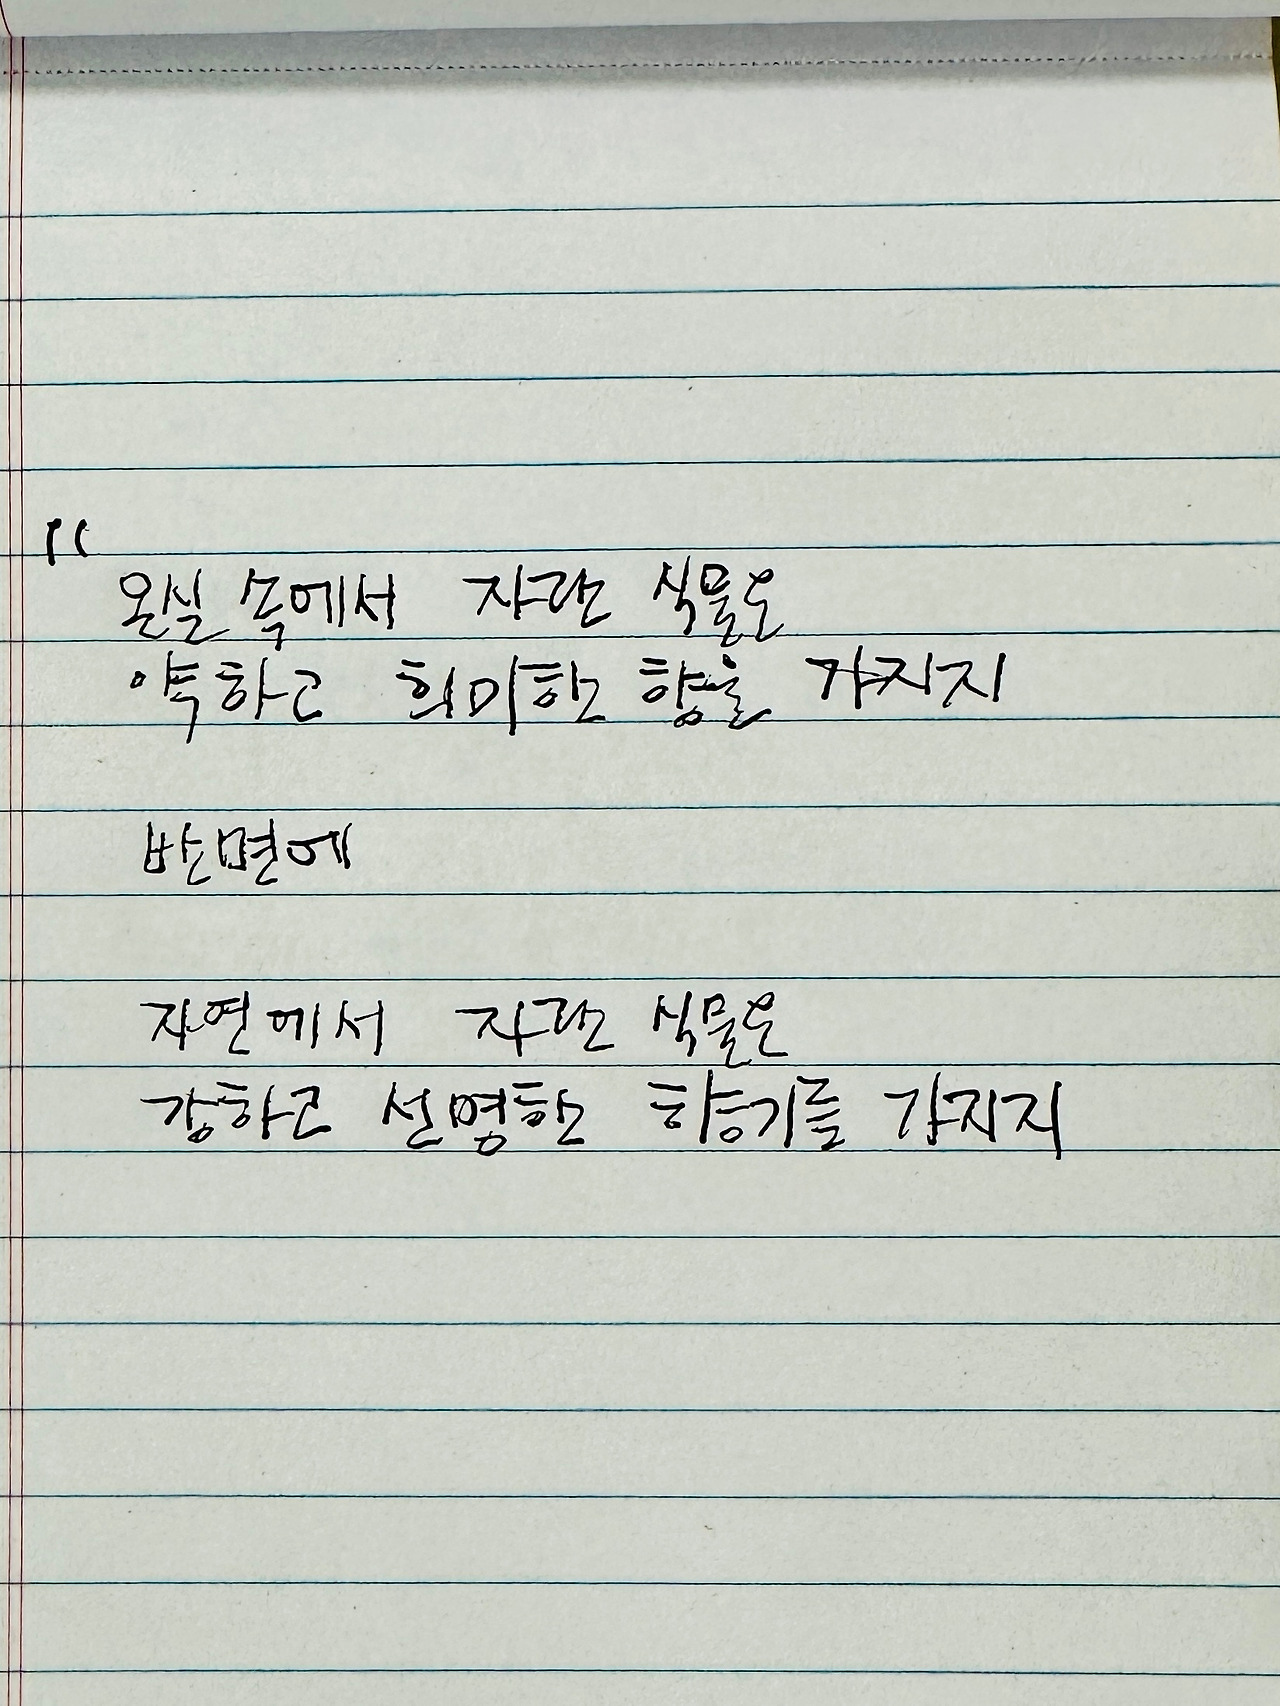 "
온실 속에서 자란 식물은
약하고 희미한 향을 가지지
반면에
자연에서 자란 식물은
강하고 선명한 향기를 가지지